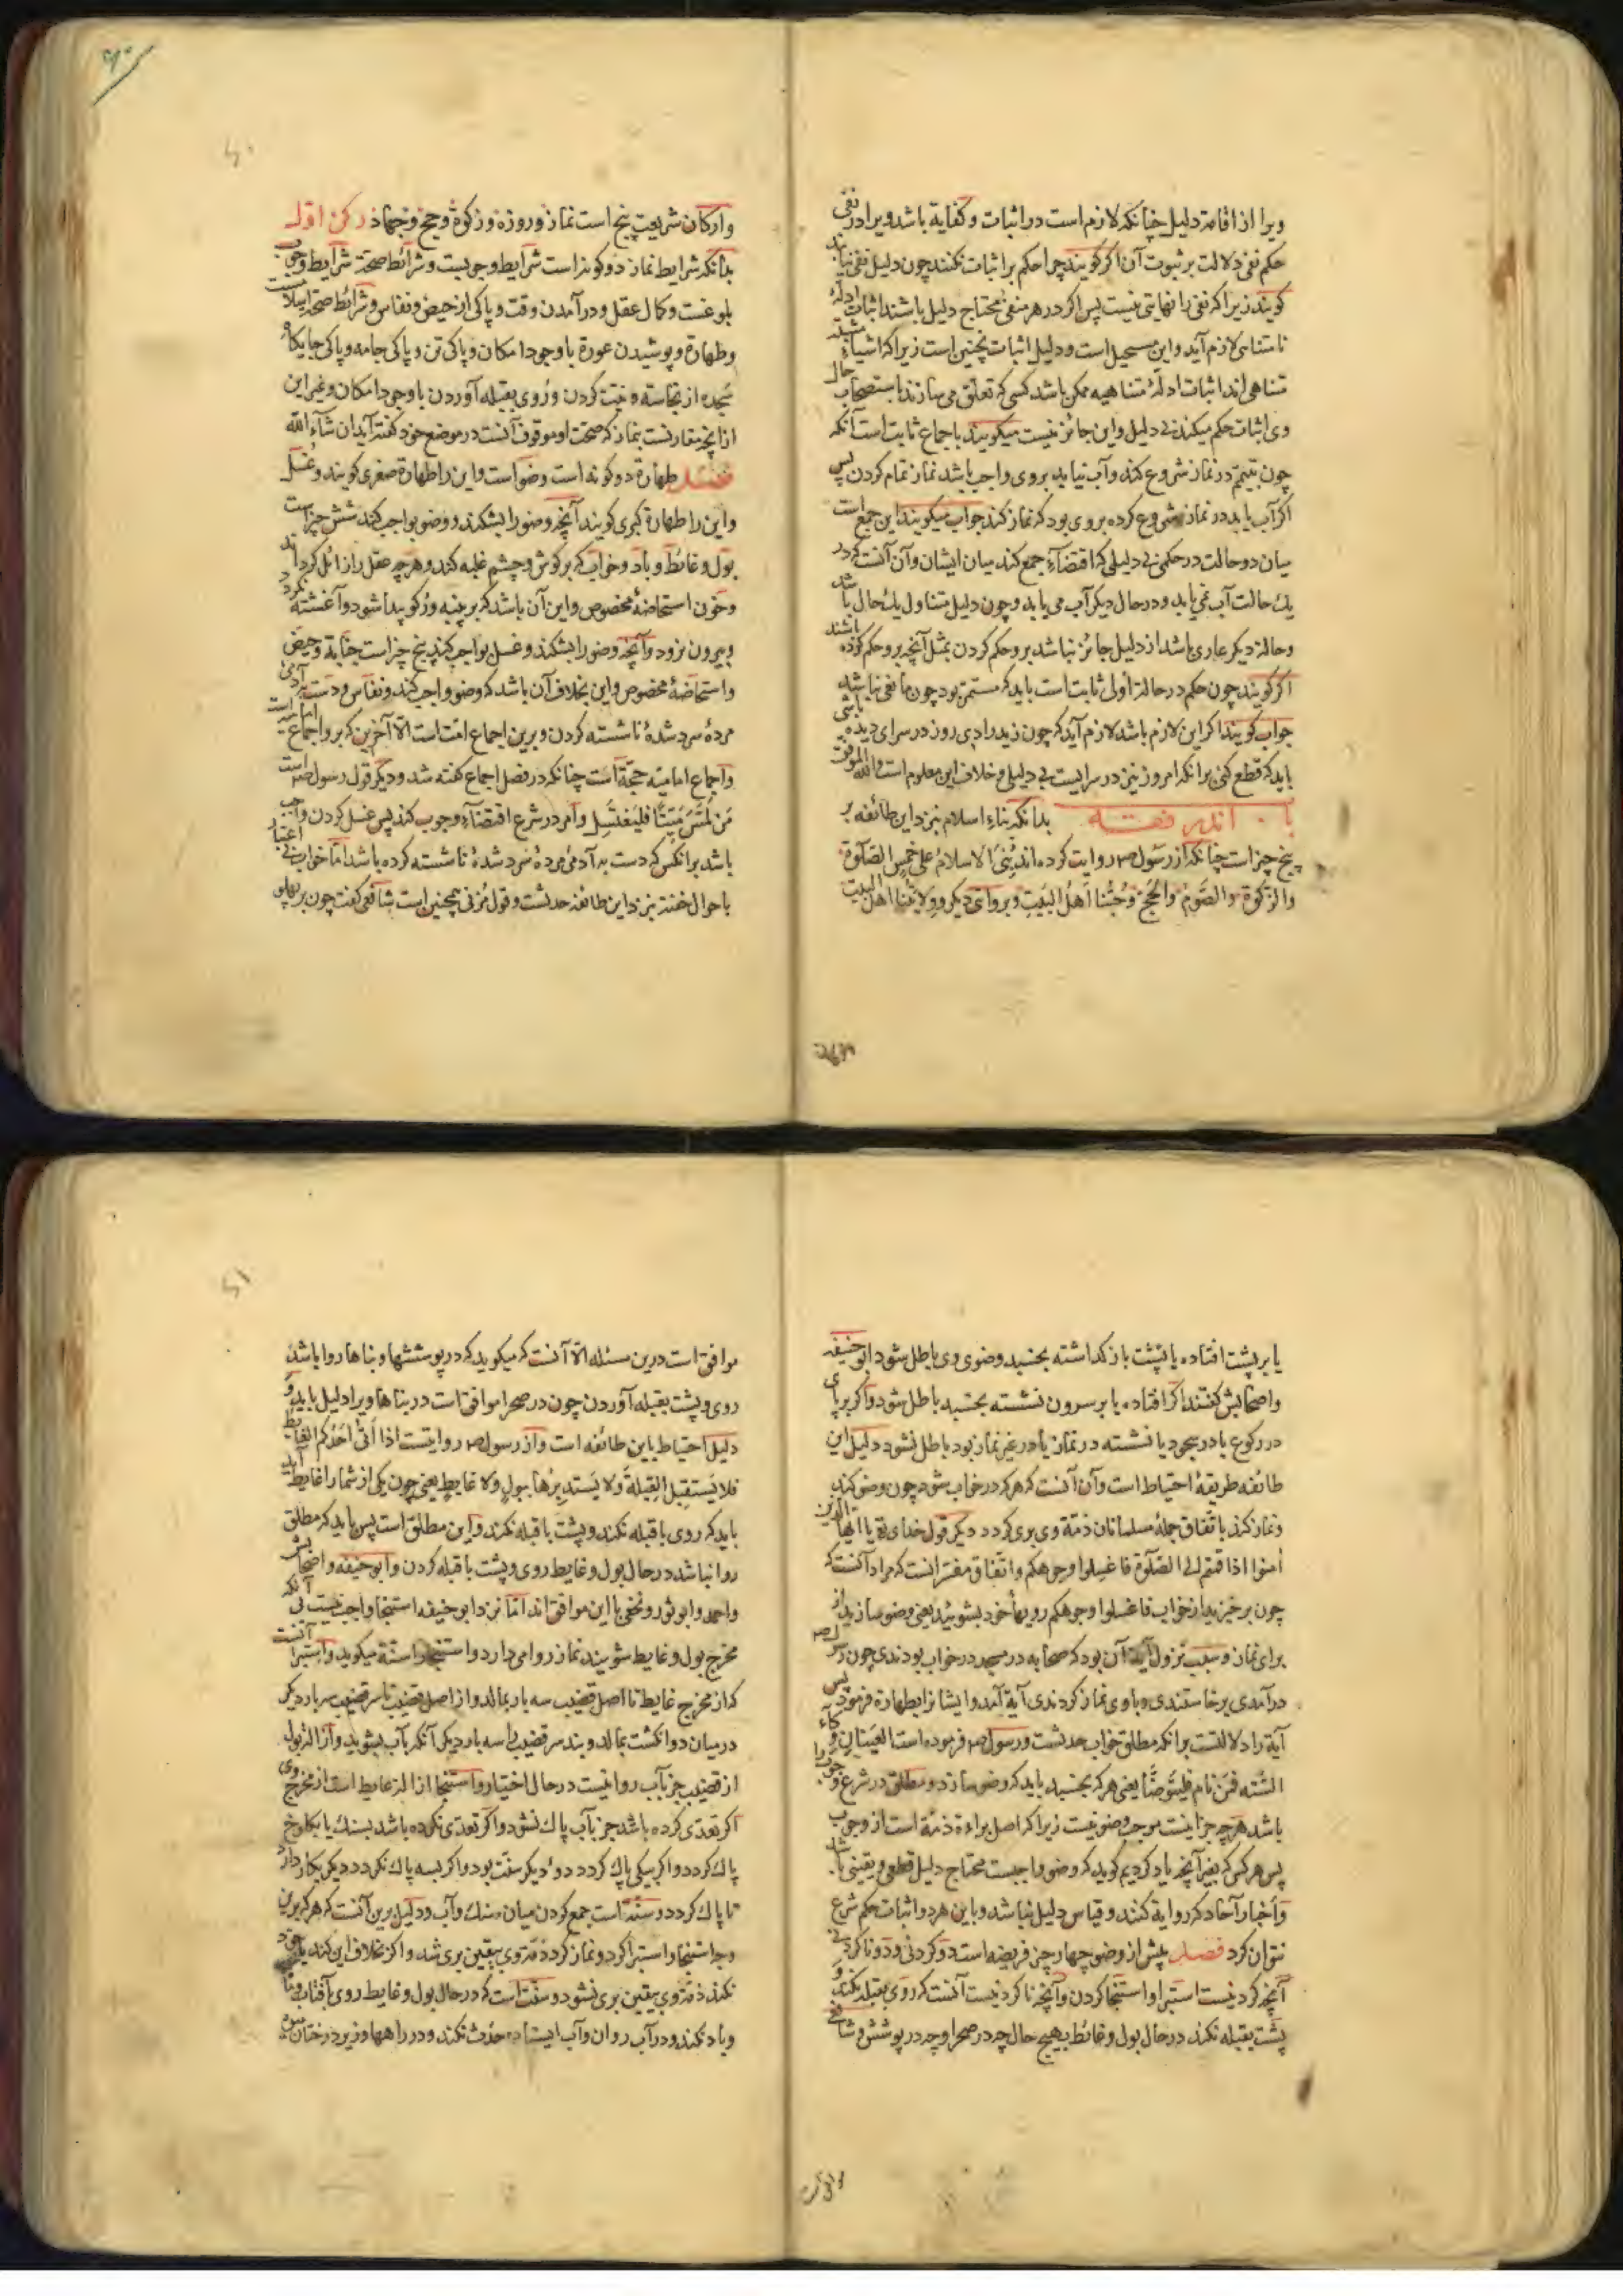 ویرا از اقامة دلیل چنانکه لازم است در اثبات و کفایة باشد ویرا در نفی
حکم نفی دلالت بر ثبوت آن اگر کویند چرا حکم بر اثبات نکنند چون دلیل نفی نیاید
کویند زیرا که نفی را نهایتی نیست پس اگر در هر منفی محتاج دلیل باشند اثبات ادلّهٔ
نامتناهی لازم آید و این مستحیل است و دلیل اثبات نچنین است زیرا که اشیاءِ مثبته
متناهی اند اثبات ادلّهٔ متناهیه ممکن باشد کسی که تعلّق می سازند باستصحاب حال
وی اثبات حکم میکند بی دلیل و این جائز نیست میکویند باجماع ثابت است آنکه
چون بتیمّم در نماز شروع کند و آب نیابد بروی واجب باشد نماز تمام کردن پس
اگر آب یابد در نماز شروع کرده بروی بود که نماز کند جواب میکویند این جمع است
میان دو حالت در حکمی بی دلیلی که اقتضاءِ جمع کند میان ایشان و آن آنست که در
یک حالت آب نمی یابد و در حال دیکر آب می یابد و چون دلیل متناول یک حال باشد
و حالة دیکر عاری باشد از دلیل جائز نباشد برو حکم کردن بمثل آنچه برو حکم کرده باشند
اگر کویند چون حکم در حالة اولی ثابت است باید که مستمر بود چون مانعی نباشد
جواب کویند اگر این لازم باشد لازم آید که چون زید را دی روز در سرای دیده باشی
باید که قطع کنی برانکه امروز نیز در سرایست بی دلیلی و خلاف این معلوم است والله الموفق
باب اندر فقه بدانکه بناءِ اسلام بنزد این طائفه بر
پنج چیز است چنانکه از رسول صم روایت کرده اند بُنِیَ الاسلامُ علی خَمسٍ الصّلوة
والزکوة والصَّوم والحج وحُبّنا اَهل البَیتِ و بروایتی دیکر و وِلایتنا اهل البیت
وارکان شریعت پنج است نماز و روزه و زکوة و حج و جهاد رکن اوّل
بدانکه شرایط نماز دو کونه است شرایط وجوبست و شرائط صحة شرایط وجوب
بلوغست و کمال عقل و درآمدن وقت و پاکی از حیض و نفاس و شرائط صحة اسلامست
و طهارة و پوشیدن عورة با وجود امکان و پاکی تن و پاکی جامه و پاکی جایکاه
سجده از نجاسة و نیت کردن و روی بقبله آوردن با وجود امکان و غیر این
از انچه مقارنست بنماز که صحّت او موقوف آنست در موضع خود کفته آید ان شآء الله
فصل طهارة دو کونه است وضو است و این را طهارة صغری کویند و غسل
و این را طهارة کبری کویند آنچه وضو را بشکند و وضو بواجب کند شش چیز است
بول و غائط و باد و خواب که بر کوش و چشم غلبه کند و هرچه عقل را زائل کرداند
و خون استحاضهٔ مخصوص و این آن باشد که بر پنبه ورکو پیدا شود و آغشته نکردد
و بیرون نرود و آنچه وضو را بشکند و غسل بواجب کند پنج چیز است جنابة و حیض
و استحاضهٔ مخصوص و این بخلاف آن باشد که وضو واجب کند و نفاس و دست بآدمی
مردهٔ سرد شدهٔ ناشسته کردن و برین اجماع امّت است الّا آخرین که برو اجماع امامیه است
و اجماع امامیّه حجّة است چنانکه در فصل اجماع کفته شد و دیکر قول رسول صم است
مَن لَمَسَ مَیّتًا فلیَغتَسِل و امر در شرع اقتضاءِ وجوب کند پس غسل کردن واجب
باشد برانکس که دست به آدمی مردهٔ سرد شدهٔ ناشسته کرده باشد امّا خواب بی اعتبار
باحوال خفته بنزد این طائفه حدثست و قول مُزنی همچنین است شافعی کفت چون بر پهلو
یا بر پشت افتاده یا پشت باز کذاشته بخسبد وضوی وی باطل شود ابو حنیفه
و اصحابش کفتند اگر افتاده یا بر سرون نشسته بخسبد باطل شود و اگر بر پای
در رکوع یا در سجود یا نشسته در نماز یا در غیر نماز بود باطل نشود دلیل این
طائفه طریقهٔ احتیاط است و آن آنست که هر که در خواب شود چون وضو کند
و نماز کند باتّفاق جملهٔ مسلمانان ذمّة وی بری کردد دیکر قول خدای تع یا ایها الذین
اٰمنوا اذا قمتم الی الصّلوة فاغسلوا وجوهکم و اتّفاق مفسّرانست که مراد آنست که
چون برخیزید از خواب فاغسلوا وجوهکم رویهاٴ خود بشویید یعنی وضو سازید از
برای نماز و سبب نزول آیة آن بود که صحابه در مسجد در خواب بودندی چون رسول صم
درآمدی برخاستندی و با وی نماز کردندی آیة آمد و ایشانرا بطهارة فرمود پس
آیة را دلالتست برانکه مطلق خواب حدثست و رسول صم فرموده است العَینانِ وِکاء
السَّته فمَن نام فلیتوضّأ یعنی هر که بخسبد باید که وضو سازد و مطلق در شرع وجوب را
باشد هرچه جز اینست موجب وضو نیست زیرا که اصل براءة ذمّة است از وجوب
پس هر کس که بغیر آنچه یاد کردیم کوید که وضو واجبست محتاج دلیل قطعی و یقینی باشد
و اخبار آحاد که روایة کنند و قیاس دلیل نباشد و باین هر دو اثبات حکم شرع
نتوان کرد فصل پیش از وضو چهار چیز فریضه است دو کردنی و دو ناکردنی
آنچه کردنیست استبرا و استنجا کردن و آنچه ناکردنیست آنست که روی بقبله نکند و
پشت بقبله نکند در حال بول و غائط بهیچ حال چه در صحرا و چه در پوشش و شافعی
موافق است درین مسئله الّا آنست که میکوید که در پوششها و بناها روا باشد
روی و پشت بقبله آوردن چون در صحرا موافق است در بناها ویرا دلیل باید و
دلیل احتیاط با این طائفه است و از رسول صم روایتست اذا اَتی اَحَدُکم الغایط
فلا یَستقبِل القِبلةَ ولا یَستدبِرُها ببولٍ ولا غایطٍ یعنی چون یکی از شما را غایط آید
باید که روی با قبله نکند و پشت با قبله نکند و این مطلق است پس باید که مطلق
روا نباشد در حال بول و غایط روی و پشت با قبله کردن و ابو حنیفه و اصحابش
و احمد و ابو ثور و نخعی با این موافق اند امّا نزد ابو حنیفه استنجا واجب نیست بی آنکه
مخرج بول و غایط شویند نماز روا می دارد و استنجا را سنّة میکوید و استبرا آنست
که از مخرج غایط تا اصل قضیب سه بار بمالد و از اصل قضیب تا سر قضیب سه بار دیکر
در میان دو انکشت بمالد و بند سر قضیب را سه بار دیکر آنکه بآب بشوید و ازالة بول
از قضیب جز بآب روا نیست در حال اختیار و استنجا ازالة غایط است از مخرج وی
اگر تعدّی کرده باشد جز بآب پاک نشود و اگر تعدّی نکرده باشد بسنک یا بکلوخ
پاک کردد و اگر بیکی پاک کردد دوء دیکر سنّت بود و اگر بسه پاک نکردد دیکر بکار دارد
تا پاک کردد و سنّة است جمع کردن میان سنک و آب و دلیل برین آنست که هر که برین
وجه استنجا و استبرا کرد و نماز کرد ذمّة وی بیقین بری شد و اگر بخلاف این کند یا خود
نکند ذمّة وی بیقین بری نشود و سنّت است که در حال بول و غایط روی بآفتاب و ماه
و باد نکند و در آب روان و آب ایستاده حدث نکند و در راهها و زیر درختان میوه